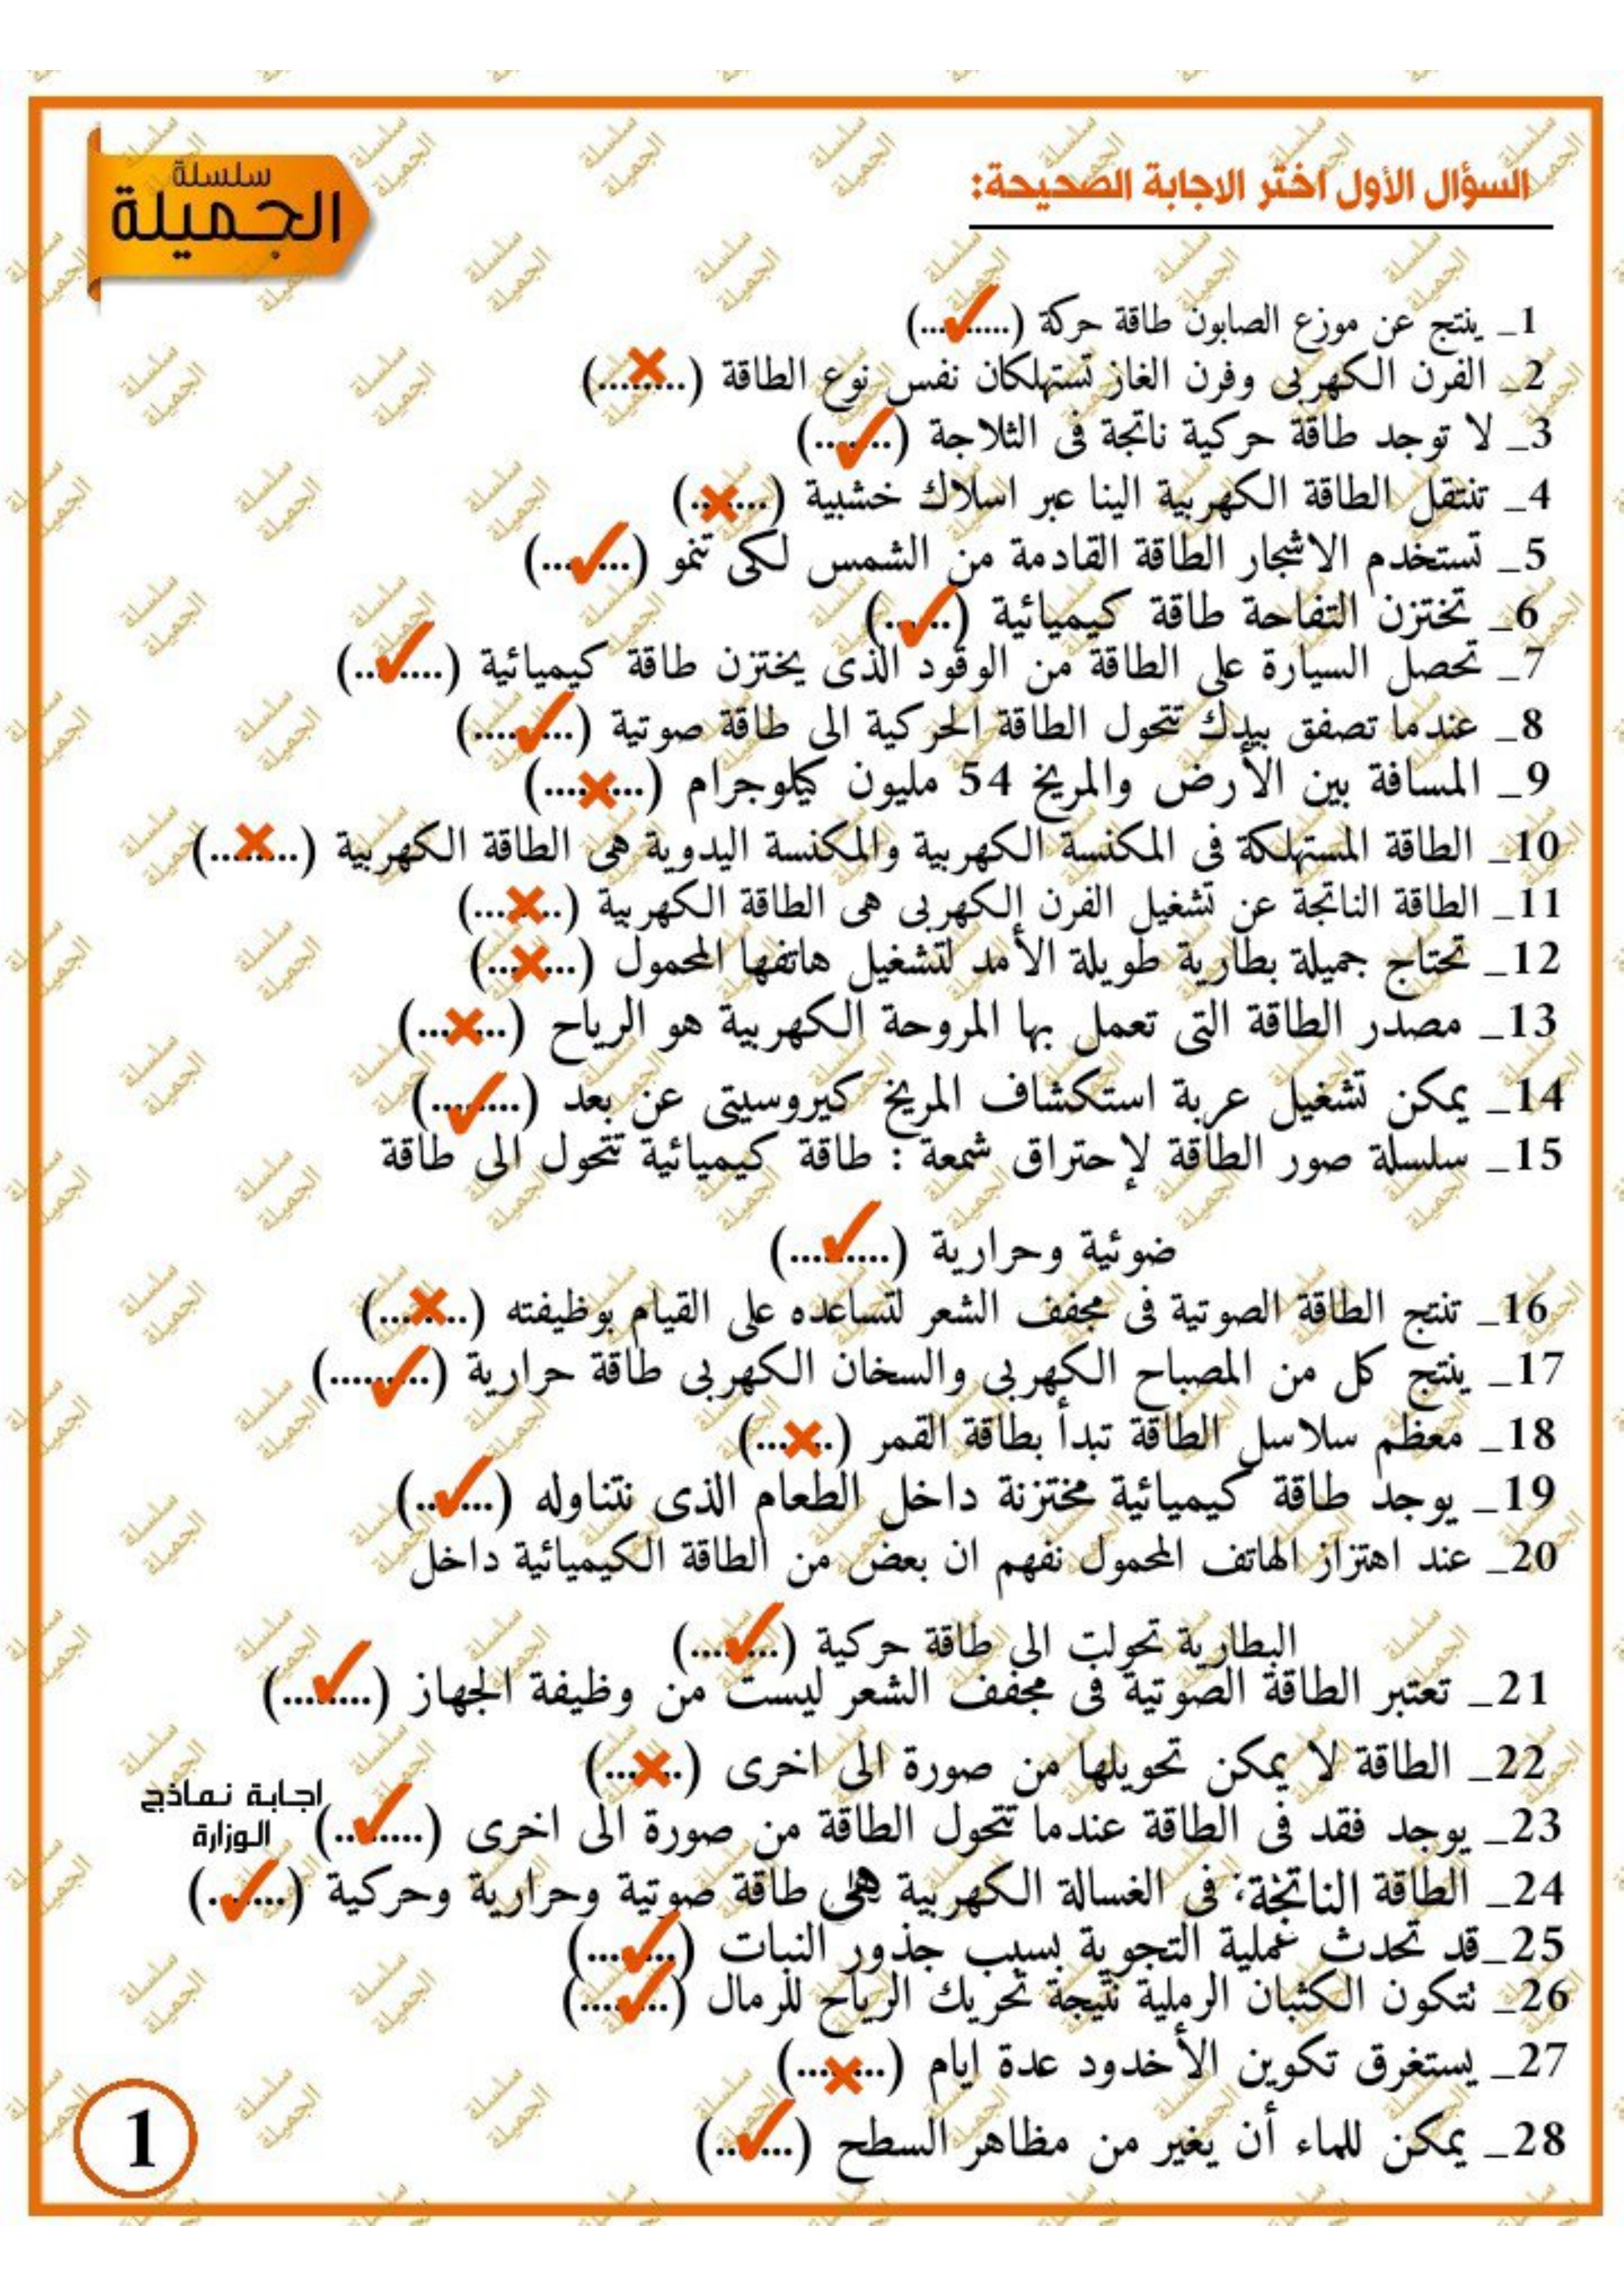 سلسلة
الجميلة
السؤال الأول اختر الاجابة الصحيحة:
1_ ينتج عن موزع الصابون طاقة حركة (..........) ✓
2_ الفرن الكهربى وفرن الغاز تستهلكان نفس نوع الطاقة (.........) ✗
3_ لا توجد طاقة حركية ناتجة فى الثلاجة (........) ✓
4_ تنتقل الطاقة الكهربية الينا عبر اسلاك خشبية (........) ✗
5_ تستخدم الاشجار الطاقة القادمة من الشمس لكى تنمو (.........) ✓
6_ تختزن التفاحة طاقة كيميائية (.......) ✓
7_ تحصل السيارة على الطاقة من الوقود الذى يختزن طاقة كيميائية (.........) ✓
8_ عندما تصفق بيدك تتحول الطاقة الحركية الى طاقة صوتية (..........) ✓
9_ المسافة بين الأرض والمريخ 54 مليون كيلوجرام (..........) ✗
10_ الطاقة المستهلكة فى المكنسة الكهربية والمكنسة اليدوية هى الطاقة الكهربية (.........) ✗
11_ الطاقة الناتجة عن تشغيل الفرن الكهربى هى الطاقة الكهربية (.........) ✗
12_ تحتاج جميلة بطارية طويلة الأمد لتشغيل هاتفها المحمول (.........) ✗
13_ مصدر الطاقة التى تعمل بها المروحة الكهربية هو الرياح (.........) ✗
14_ يمكن تشغيل عربة استكشاف المريخ كيروسيتى عن بعد (.........) ✓
15_ سلسلة صور الطاقة لإحتراق شمعة : طاقة كيميائية تتحول الى طاقة
ضوئية وحرارية (..........) ✓
16_ تنتج الطاقة الصوتية فى مجفف الشعر لتساعده على القيام بوظيفته (.........) ✗
17_ ينتج كل من المصباح الكهربى والسخان الكهربى طاقة حرارية (..........) ✓
18_ معظم سلاسل الطاقة تبدأ بطاقة القمر (........) ✗
19_ يوجد طاقة كيميائية مختزنة داخل الطعام الذى نتناوله (........) ✓
20_ عند اهتزاز الهاتف المحمول نفهم ان بعض من الطاقة الكيميائية داخل
البطارية تحولت الى طاقة حركية (.........) ✓
21_ تعتبر الطاقة الصوتية فى مجفف الشعر ليست من وظيفة الجهاز (.........) ✓
22_ الطاقة لا يمكن تحويلها من صورة الى اخرى (........) ✗
23_ يوجد فقد فى الطاقة عندما تتحول الطاقة من صورة الى اخرى (.........) ✓
اجابة نماذج
الوزارة
24_ الطاقة الناتجة فى الغسالة الكهربية هى طاقة صوتية وحرارية وحركية (........) ✓
25_قد تحدث عملية التجوية بسبب جذور النبات (.........) ✓
26_ تتكون الكثبان الرملية نتيجة تحريك الرياح للرمال (.........) ✓
27_ يستغرق تكوين الأخدود عدة ايام (.........) ✗
28_ يمكن للماء أن يغير من مظاهر السطح (........) ✓
1